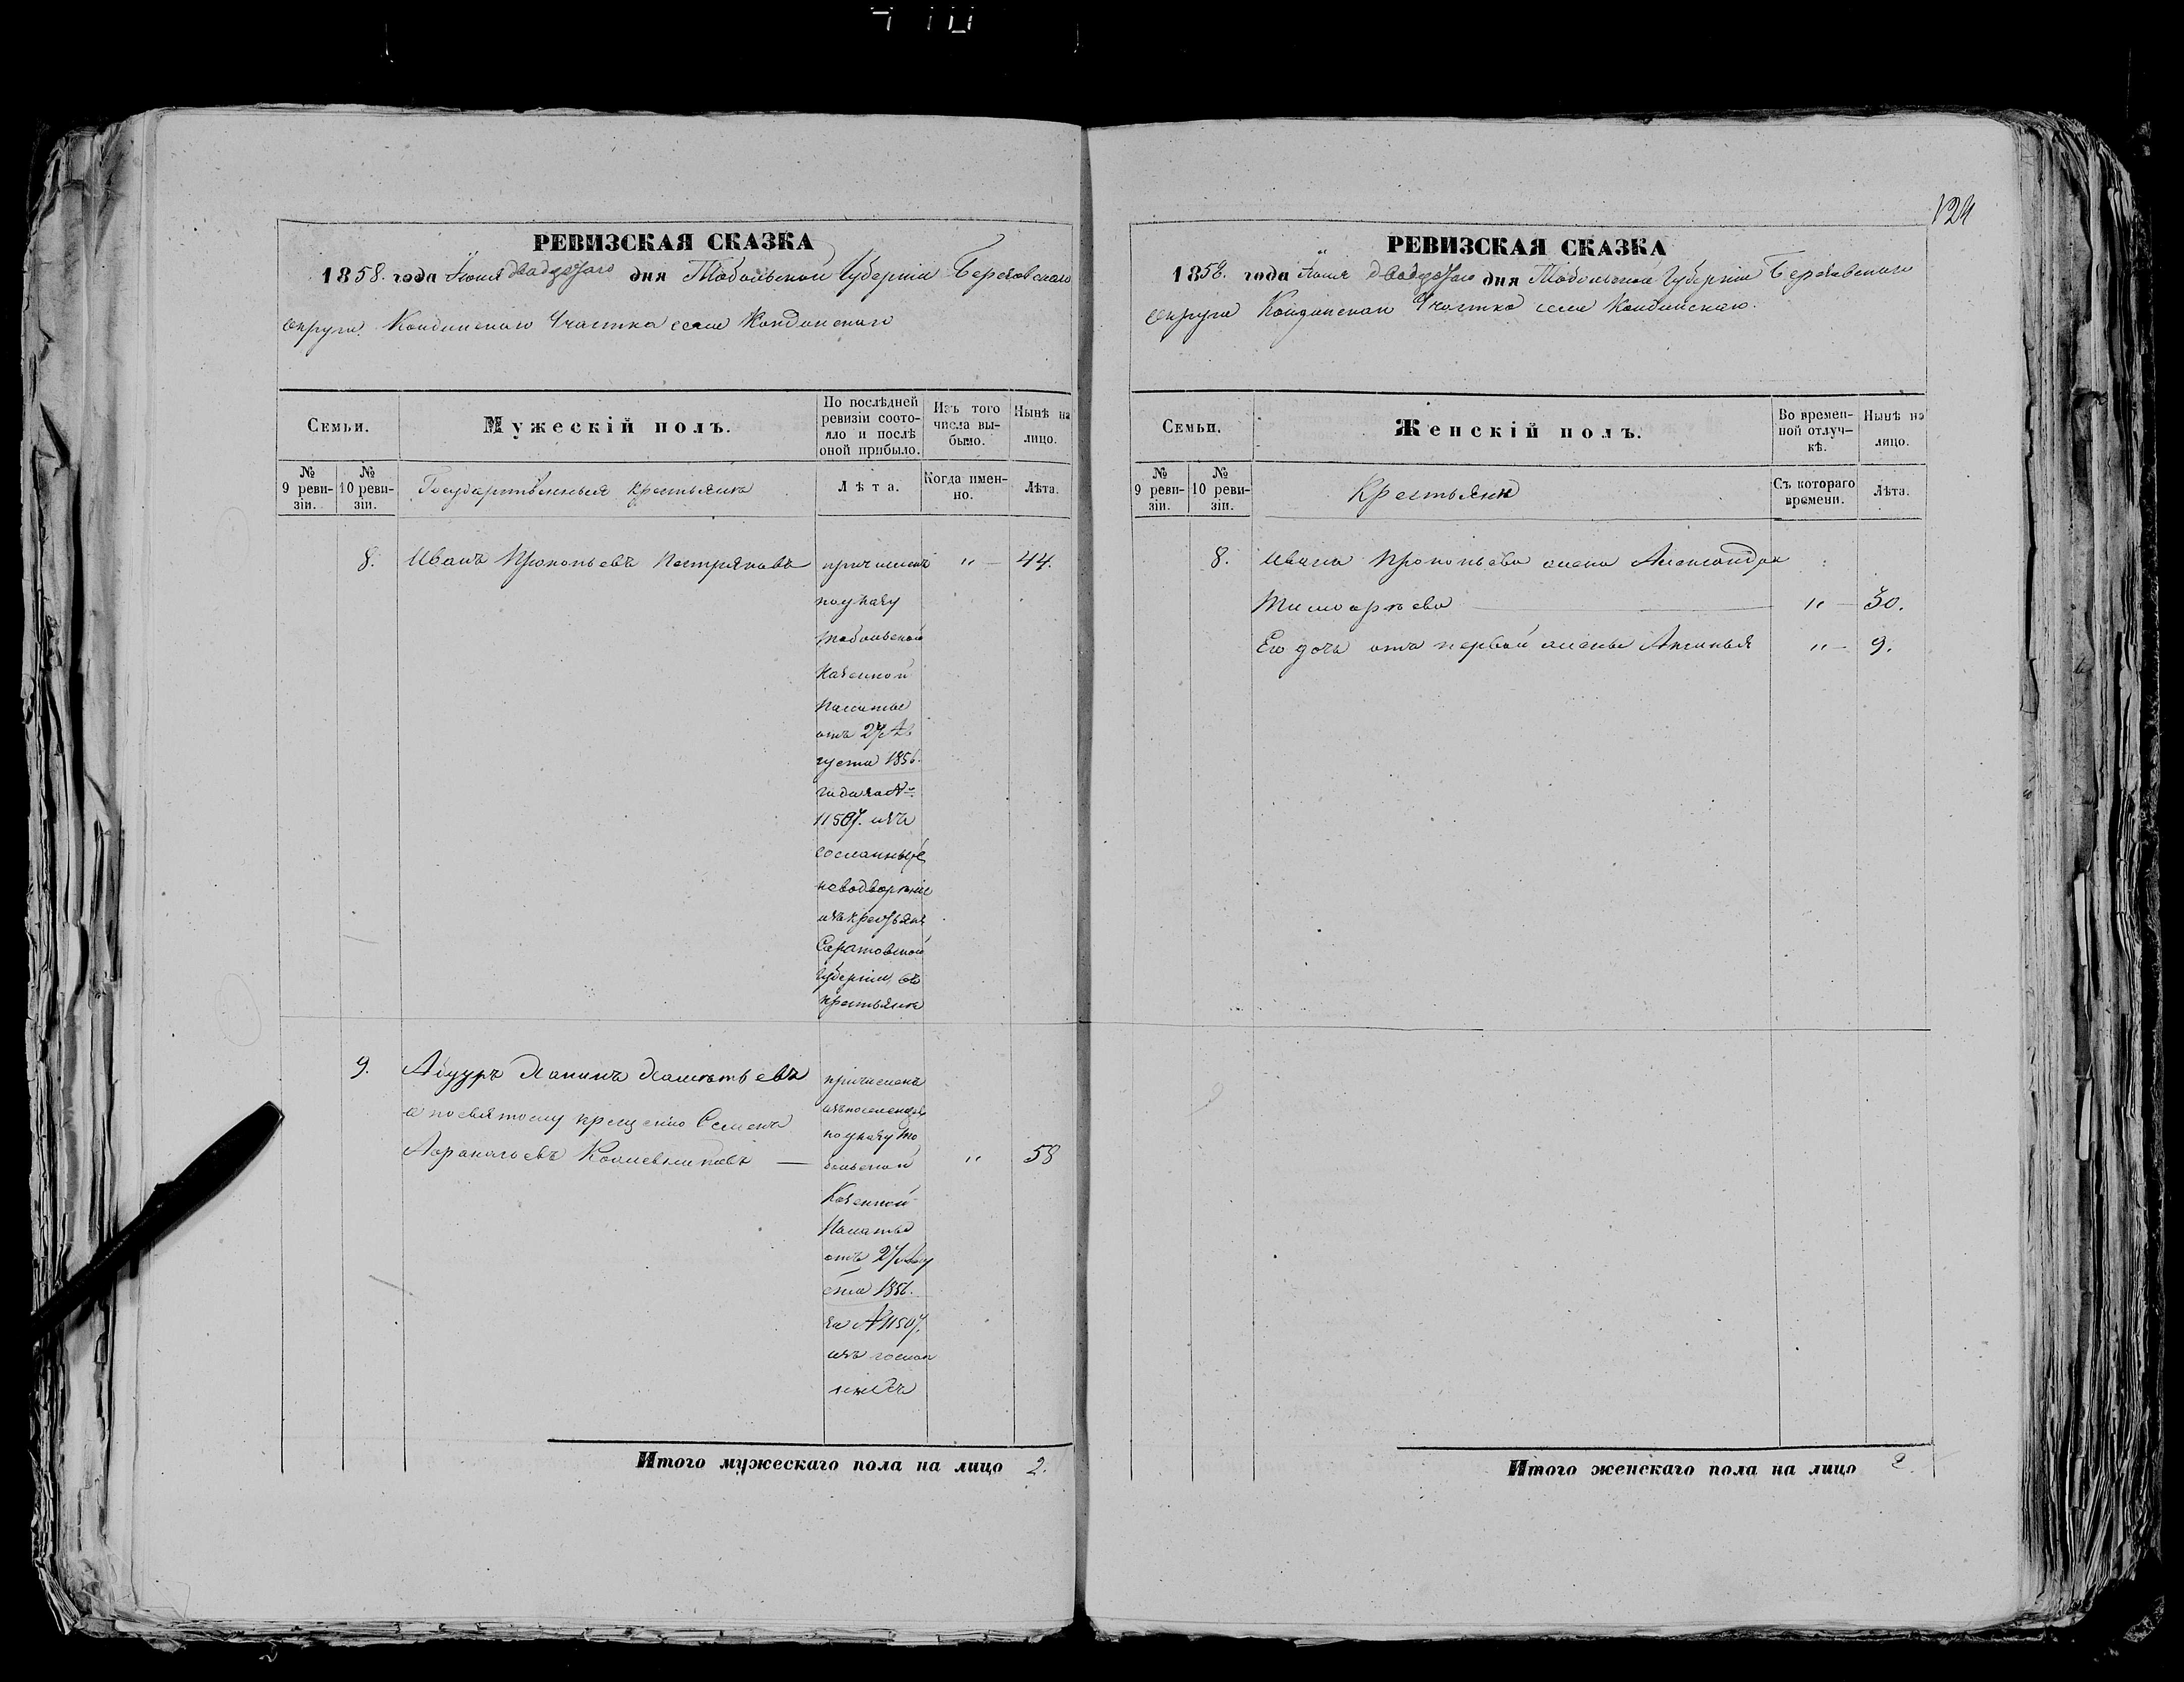 РЕВИЗСКАЯ СКАЗКА
1858. года Іюня двадцатаго дня Тобольской Губерніи Березовскаго
округа Кондинскаго Участка села Кондинскаго
Семьи.
Мужескій полъ.
По послѣдней
ревизіи состо-
яло и послѣ
оной прибыло.
Изъ того
числа вы-
было.
Нынѣ на
лицо.
№
9 реви-
зіи.
№
10 реви-
зіи.
Государственныя крестьяна
Лѣта.
Когда имен-
но.
Лѣта.
8. Иванъ Прокопьевъ Пестряковъ причисленъ " — 44.
по указу
Тобольской
Казенной
Палаты
отъ 27 Ав
густа 1856.
года за №
11507. изъ
сосланныхъ
на водвореніе
изъ крестьянъ
Саратовской
губерніи, въ
крестьяна
9.
а посвятому крещенію Семенъ
Кожевниковъ —
причисленъ
по указу То
больской " 58
Казенной
Палаты
отъ 27 Авгу
ста 1856.
за № 11507.
изъ
Итого мужескаго пола на лицо 2.
124
РЕВИЗСКАЯ СКАЗКА
1858. года Іюня двадцатаго дня Тобольской Губерніи Березовскаго
округа Кондинскаго Участка села Кондинскаго.
Семьи.
Женскій полъ.
Во времен-
ной отлуч-
кѣ.
Нынѣ на
лицо.
№
9 реви-
зіи.
№
10 реви-
зіи.
Крестьянк
Съ котораго
времени.
Лѣта.
8. Ивана Прокопьева жена Александра
Тимофѣева — " — 30.
Его дочь отъ первой жены Аксинья " — 9.
Итого женскаго пола на лицо 2.